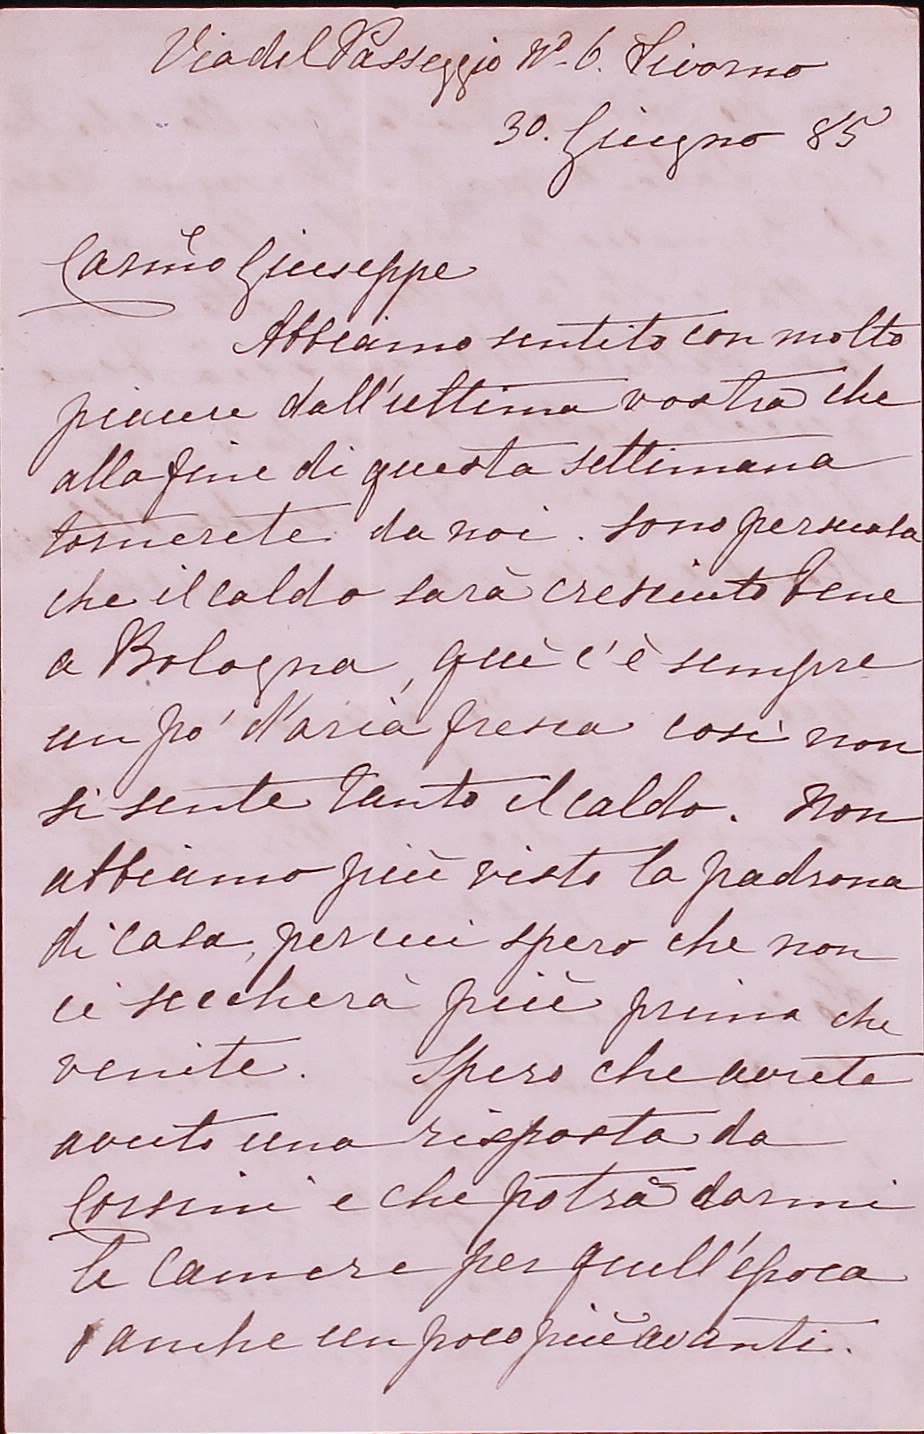 Via del Passeggio No. 6. Livorno
30. Giugno 85
Carmo Giuseppe
Abbiamo sentito con molto
piacere dall'ultima vostra che
alla fine di questa settimana
tornerete da noi. Sono persuasa
che il caldo sarà cresciuto bene
a Bologna, quì c'è sempre
un po' d'aria fresca così non
si sente tanto il caldo. Non
abbiamo più visto la padrona
di casa, per cui spero che non
ci seccherà più prima che
venite. Spero che avrete
avuto una risposta da
Corsini e che potrà darmi
le camere per quell'epoca
o anche un poco più avanti.